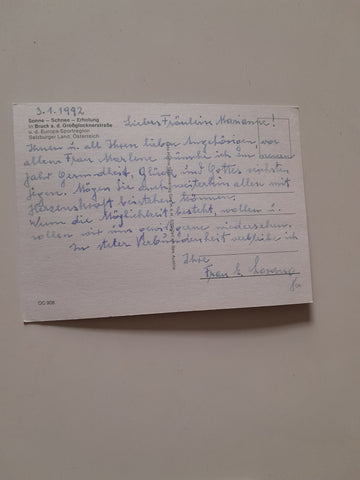 3.1.1992
Sonne – Schnee – Erholung
in Bruck a. d. Großglocknerstraße
u. d. Europa-Sportregion
Salzburger Land, Österreich
Liebes Fräulein Marianne!
Ihnen u. all Ihren lieben Angehörigen, vor
allem Frau Marlene wünsche ich im neuen
Jahr Gesundheit, Glück und Gottes reichsten
Segen. Mögen Sie auch weiterhin allen mit
Herzenskraft beistehen können.
Wenn die Möglichkeit besteht, wollen u.
sollen wir uns gerne wiedersehen.
In steter Verbundenheit verbleibe ich
Ihre
Frau
OC 908